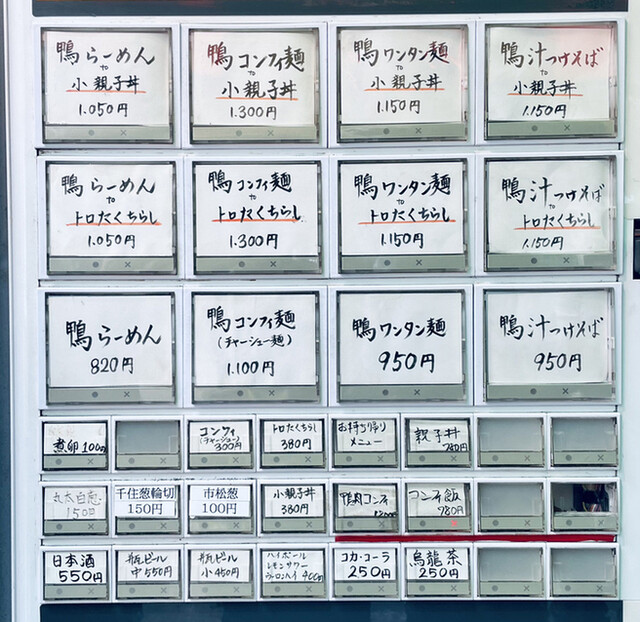 鴨らーめん
to
小親子丼
1.050円
鴨コンフィ麺
to
小親子丼
1.300円
鴨ワンタン麺
to
小親子丼
1.150円
鴨汁つけそば
to
小親子丼
1.150円
鴨らーめん
to
トロたくちらし
1.050円
鴨コンフィ麺
to
トロたくちらし
1.300円
鴨ワンタン麺
to
トロたくちらし
1.150円
鴨汁つけそば
to
トロたくちらし
1.150円
鴨らーめん
820円
鴨コンフィ麺
(チャーシュー麺)
1.100円
鴨ワンタン麺
950円
鴨汁つけそば
950円
煮卵100円
コンフィ
(チャーシュー)
300円
トロたくちらし
380円
お持ち帰り
メニュー
親子丼
780円
丸太白葱
150円
千住葱輪切
150円
市松葱
100円
小親子丼
380円
鴨肉コンフィ
コンフィ飯
780円
日本酒
550円
瓶ビール
中550円
瓶ビール
小450円
ハイボール
レモンサワー
ウーロンハイ 400円
コカ・コーラ
250円
烏龍茶
250円